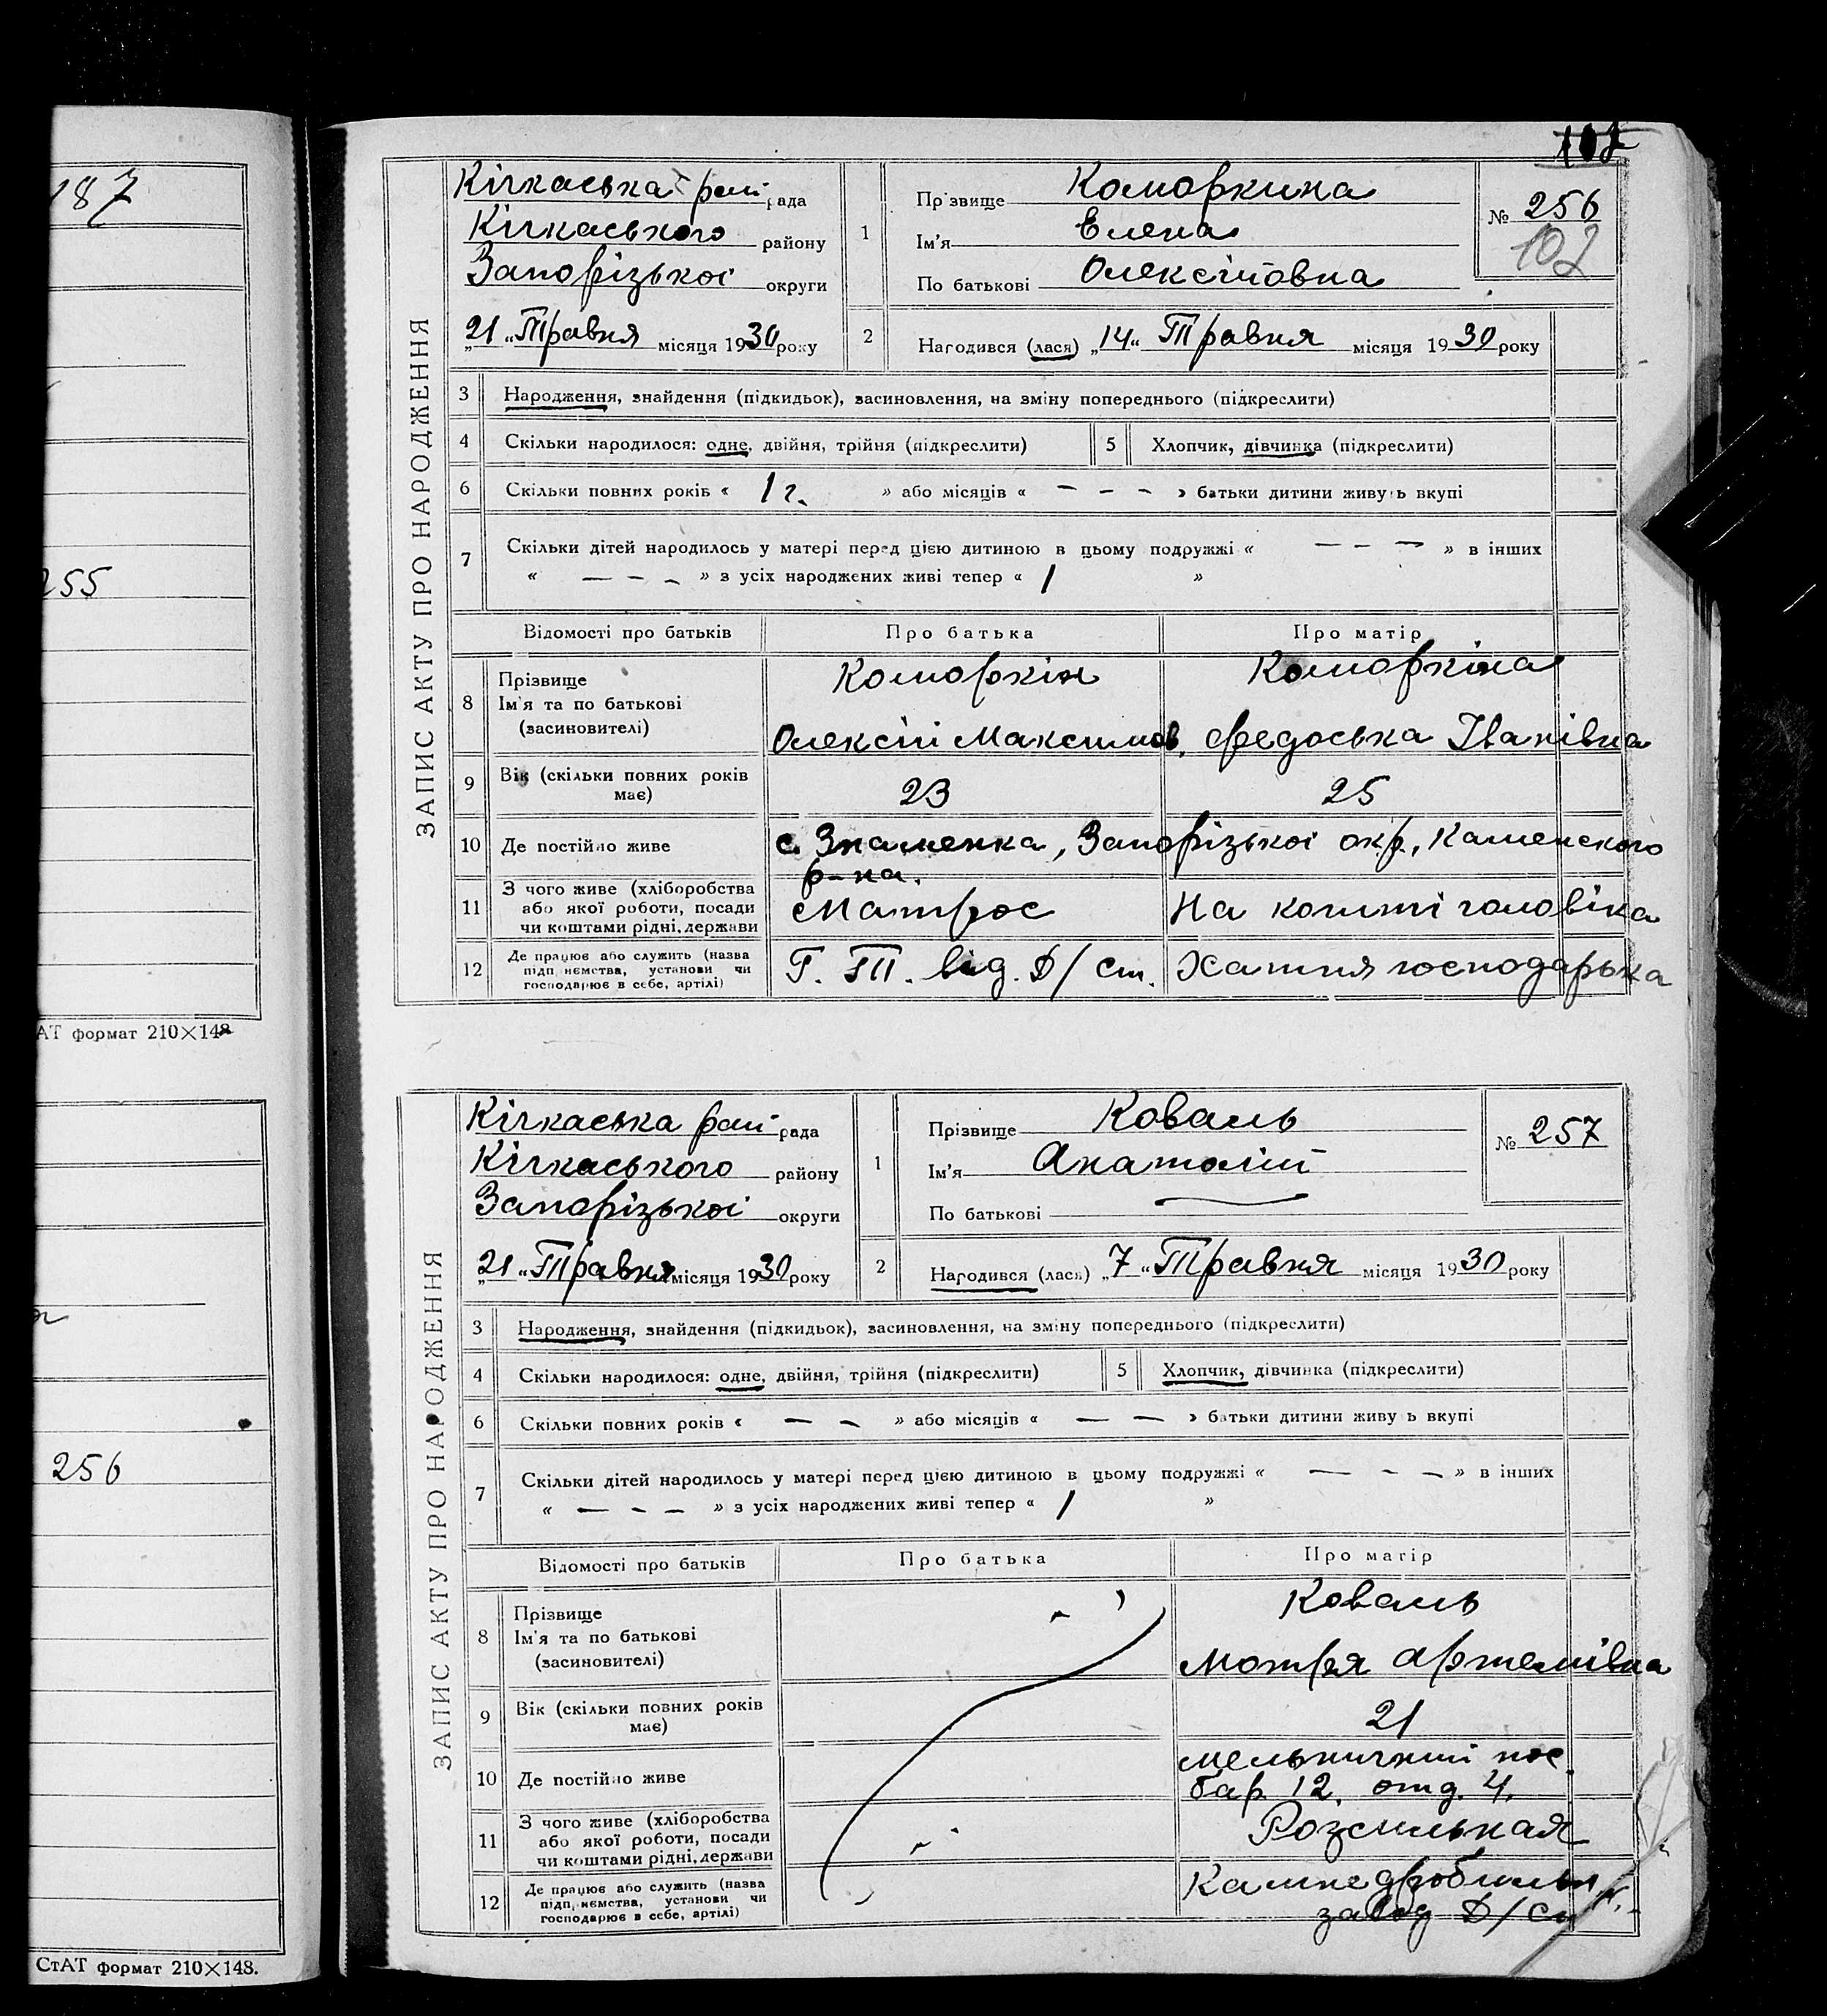 187
255
АТ формат 210×148
256
СтАТ формат 210×148.
102
ЗАПИС АКТУ ПРО НАРОДЖЕННЯ
Кічкаська рай рада
Кічкаського району
Запорізької округи
„21“ Травня місяця 1930 року
1
Прізвище Коморкина
Ім'я Елена
По батькові Олексіївна
№ 256
102
2 Народився (лася) „14“ Травня місяця 1930 року
3 Народження, знайдення (підкидьок), засиновлення, на зміну попереднього (підкреслити)
4 Скільки народилося: одне, двійня, трійня (підкреслити) 5 Хлопчик, дівчинка (підкреслити)
6 Скільки повних років « 1 г. » або місяців « – – – » батьки дитини живуть вкупі
7 Скільки дітей народилось у матері перед цією дитиною в цьому подружжі « – – – » в інших
« – – – » з усіх народжених живі тепер « 1 »
Відомості про батьків Про батька Про матір
8 Прізвище Коморкін Коморкіна
Ім'я та по батькові
(засиновителі) Олексій Максимов. Федоська Іванівна
9 Вік (скільки повних років має) 23 25
10 Де постійно живе с. Знаменка, Запорізької окр., Каменского
р-на.
11 З чого живе (хліборобства
або якої роботи, посади Матрос На кошті чоловіка
чи коштами рідні, держави
12 Де працює або служить (назва
підприємства, установи чи Г. П. від. Д/ст. Хатня господарька
господарює в себе, артілі)
ЗАПИС АКТУ ПРО НАРОДЖЕННЯ
Кічкаська рай рада
Кічкаського району
Запорізької округи
„21“ Травня місяця 1930 року
1
Прізвище Коваль
Ім'я Анатолій
По батькові
№ 257
2 Народився (лася) „7“ Травня місяця 1930 року
3 Народження, знайдення (підкидьок), засиновлення, на зміну попереднього (підкреслити)
4 Скільки народилося: одне, двійня, трійня (підкреслити) 5 Хлопчик, дівчинка (підкреслити)
6 Скільки повних років « – – » або місяців « – – » батьки дитини живуть вкупі
7 Скільки дітей народилось у матері перед цією дитиною в цьому подружжі « – – – » в інших
« – – – » з усіх народжених живі тепер « 1 »
Відомості про батьків Про батька Про матір
8 Прізвище Коваль
Ім'я та по батькові
(засиновителі) Мотря Артемівна
9 Вік (скільки повних років має) 21
10 Де постійно живе Мельничний пос.
бар. 12. отд. 4.
11 З чого живе (хліборобства
або якої роботи, посади Розсильная
чи коштами рідні, держави
12 Де працює або служить (назва Камнедробильн.
підприємства, установи чи
господарює в себе, артілі) завод Д/Ст